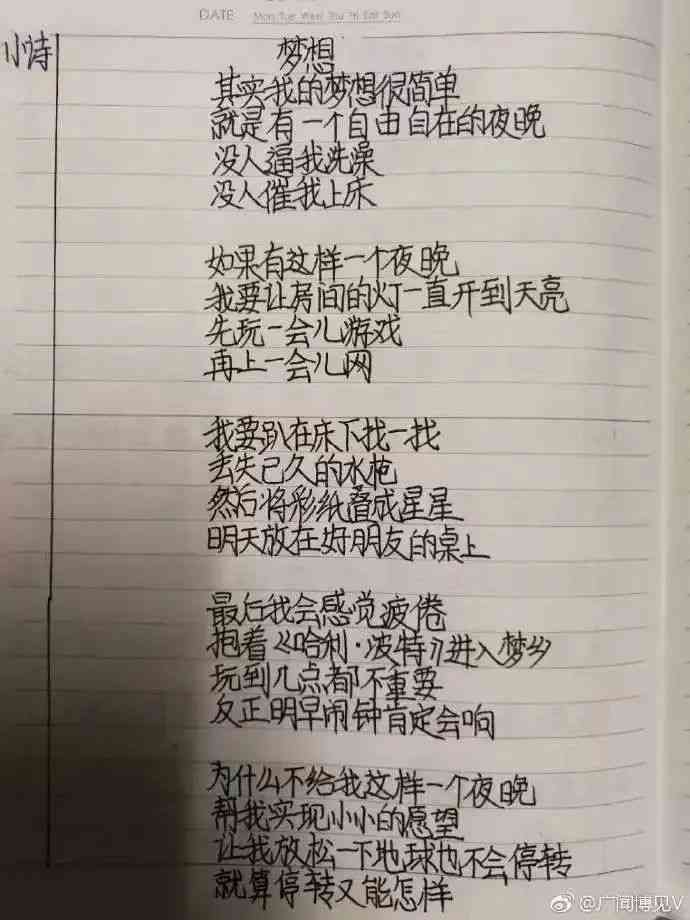 DATE
Mon Tue Wed Thu Fri Sat Sun
小诗
梦想
其实我的梦想很简单
就是有一个自由自在的夜晚
没人逼我洗澡
没人催我上床
如果有这样一个夜晚
我要让房间的灯一直开到天亮
先玩一会儿游戏
再上一会儿网
我要趴在床下找一找
丢失已久的水枪
然后将彩纸叠成星星
明天放在好朋友的桌上
最后我会感觉疲倦
抱着《哈利·波特》进入梦乡
玩到几点都不重要
反正明早闹钟肯定会响
为什么不给我这样一个夜晚
帮我实现小小的愿望
让我放松一下地球也不会停转
就算停转又能怎样
@广闻博见V